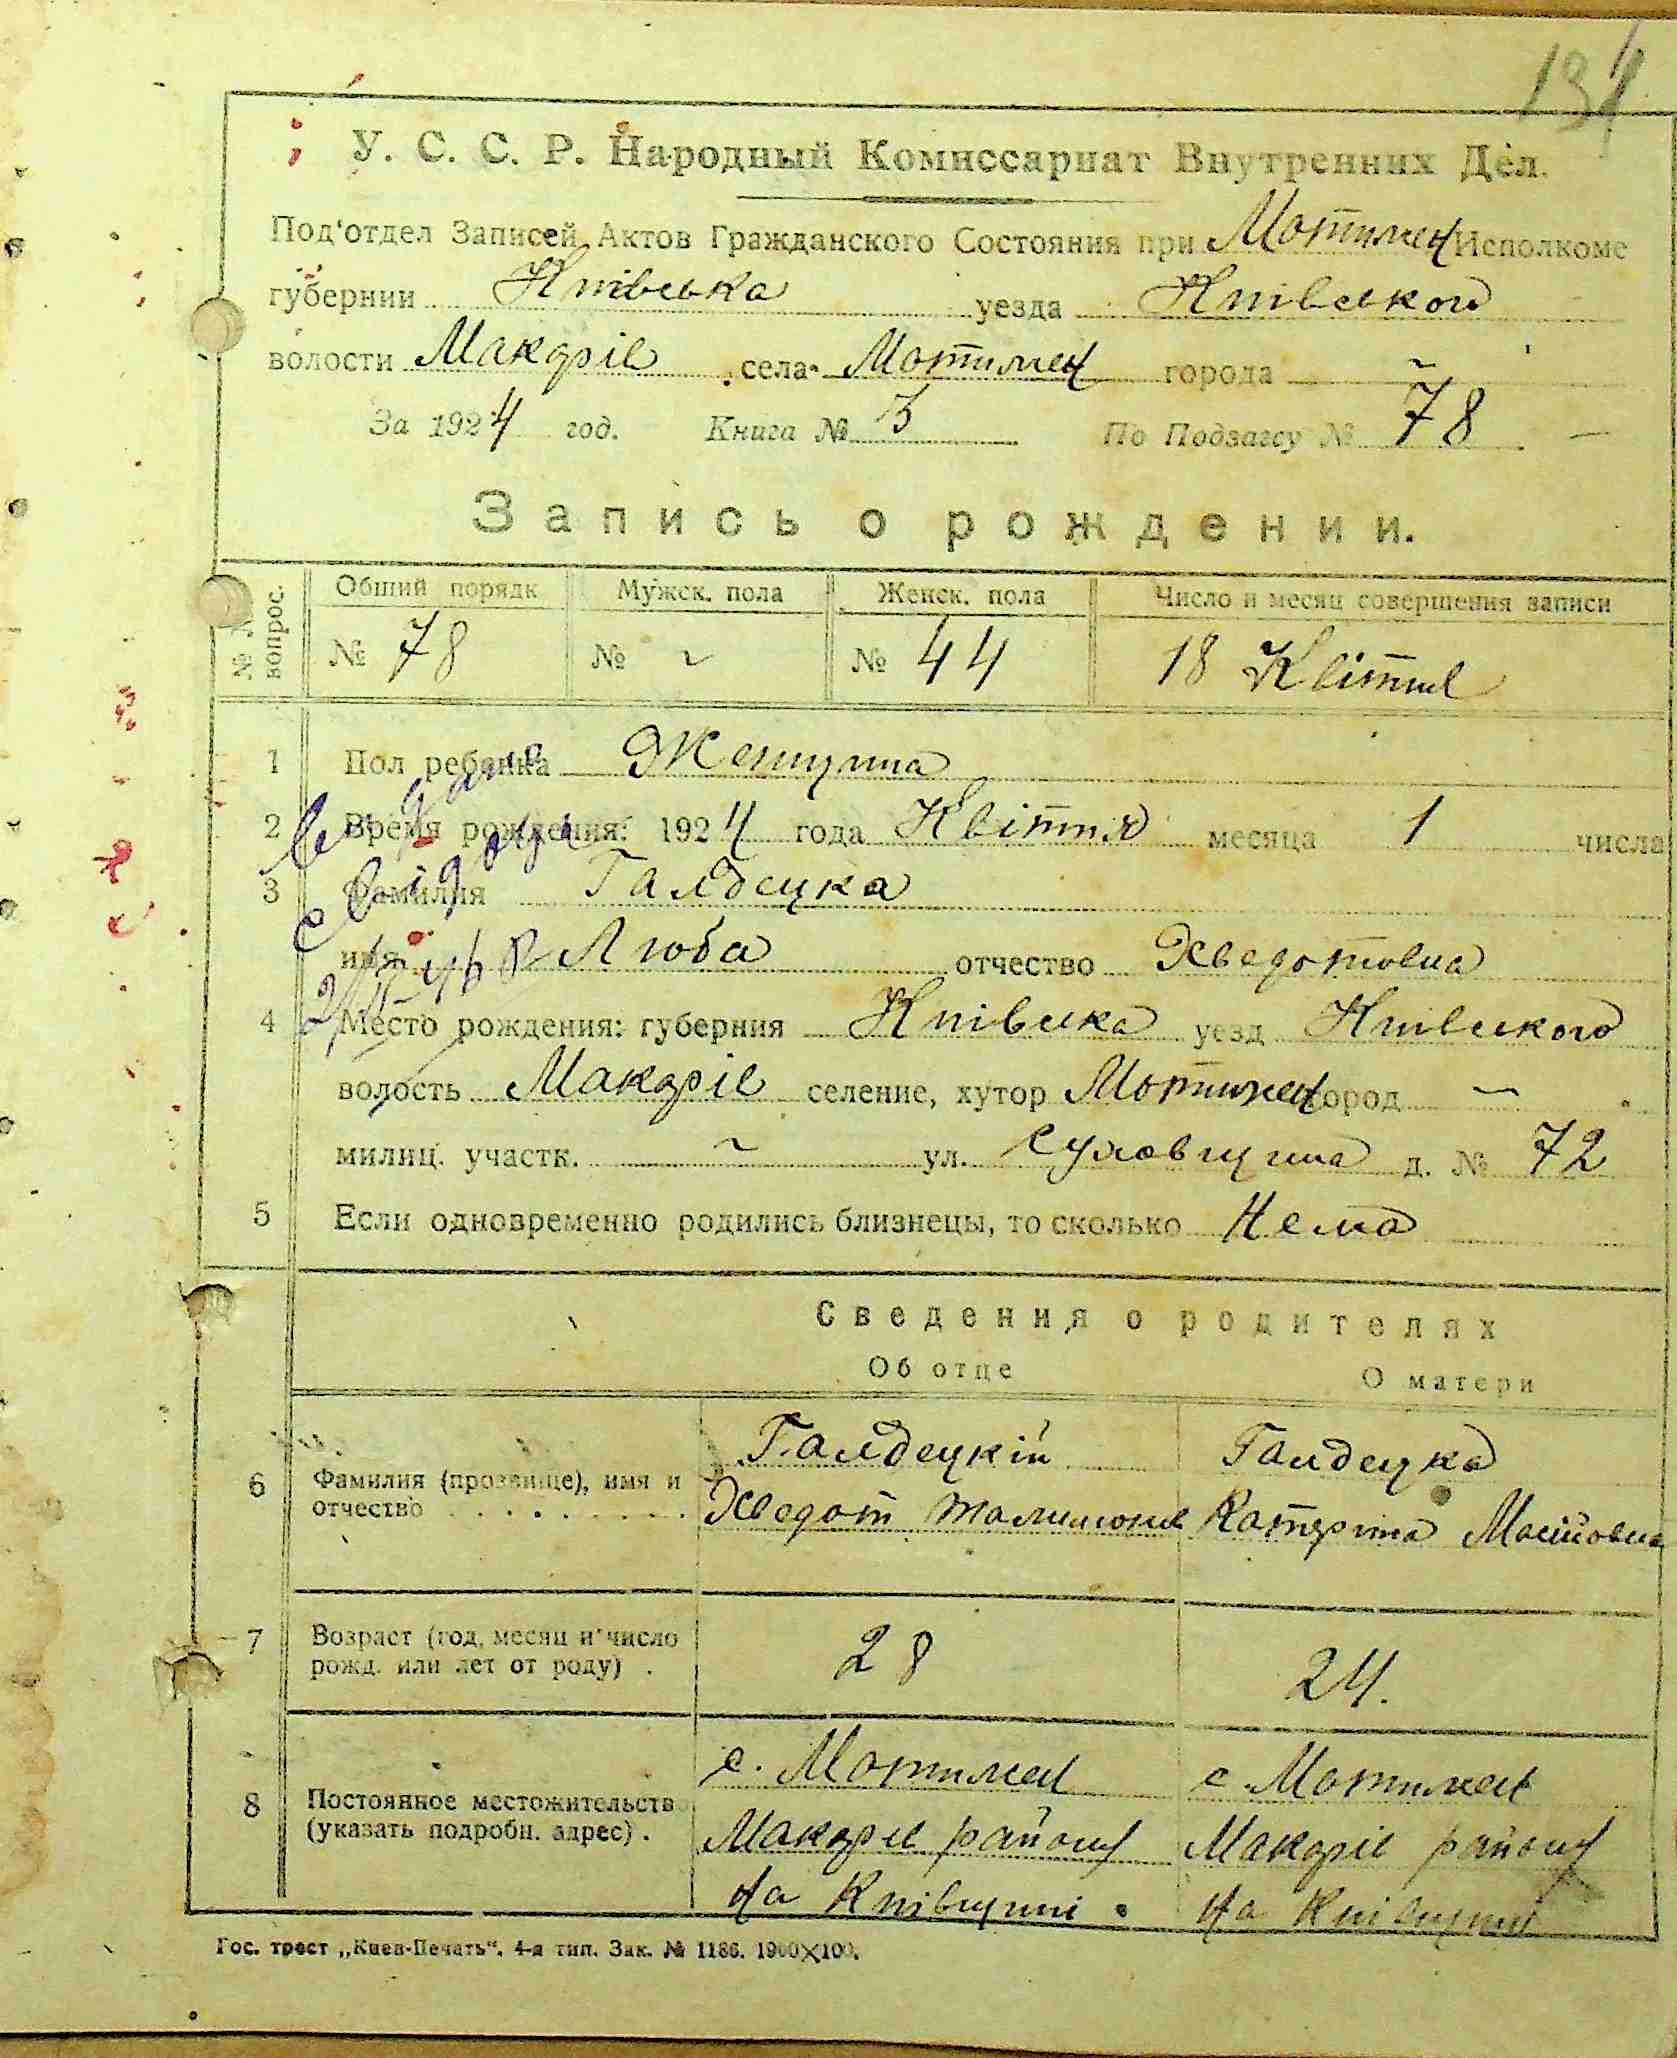 134
У. С. С. Р. Народный Комиссариат Внутренних Дел.
Под'отдел Записей Актов Гражданского Состояния при Мотижен Исполкоме
губернии Київська уезда Київського
волости Макарів села Мотижен города ~
За 1924 год. Книга № 3 По Подзагсу № 78 —
Запись о рождении.
№ № вопрос. Общий порядк Мужск. пола Женск. пола Число и месяц совершения записи
№ 78 № ~ № 44 18 Квітня
1 Пол ребенка Женщина
2 Время рождения: 1924 года Квітня месяца 1 числа
3 Фамилия Галдецка
имя Люба отчество Хведотовна
4 Место рождения: губерния Київська уезд Київського
волость Макарів селение, хутор Мотижен город —
милиц. участк. ~ ул. д. № 72
5 Если одновременно родились близнецы, то сколько Нема
Сведения о родителях
Об отце О матери
Галдецкій Галдецка
6 Фамилия (прозвище), имя и отчество Хведот Катерина
7 Возраст (год, месяц и число рожд. или лет от роду) . 28 24.
с. Мотижен с. Мотижен
8 Постоянное местожительств (указать подробн. адрес) . Макарів району Макарів району
На Київщині На Київщині
Гос. трест „Киев-Печать“. 4-я тип. Зак. № 1186. 1900×100.